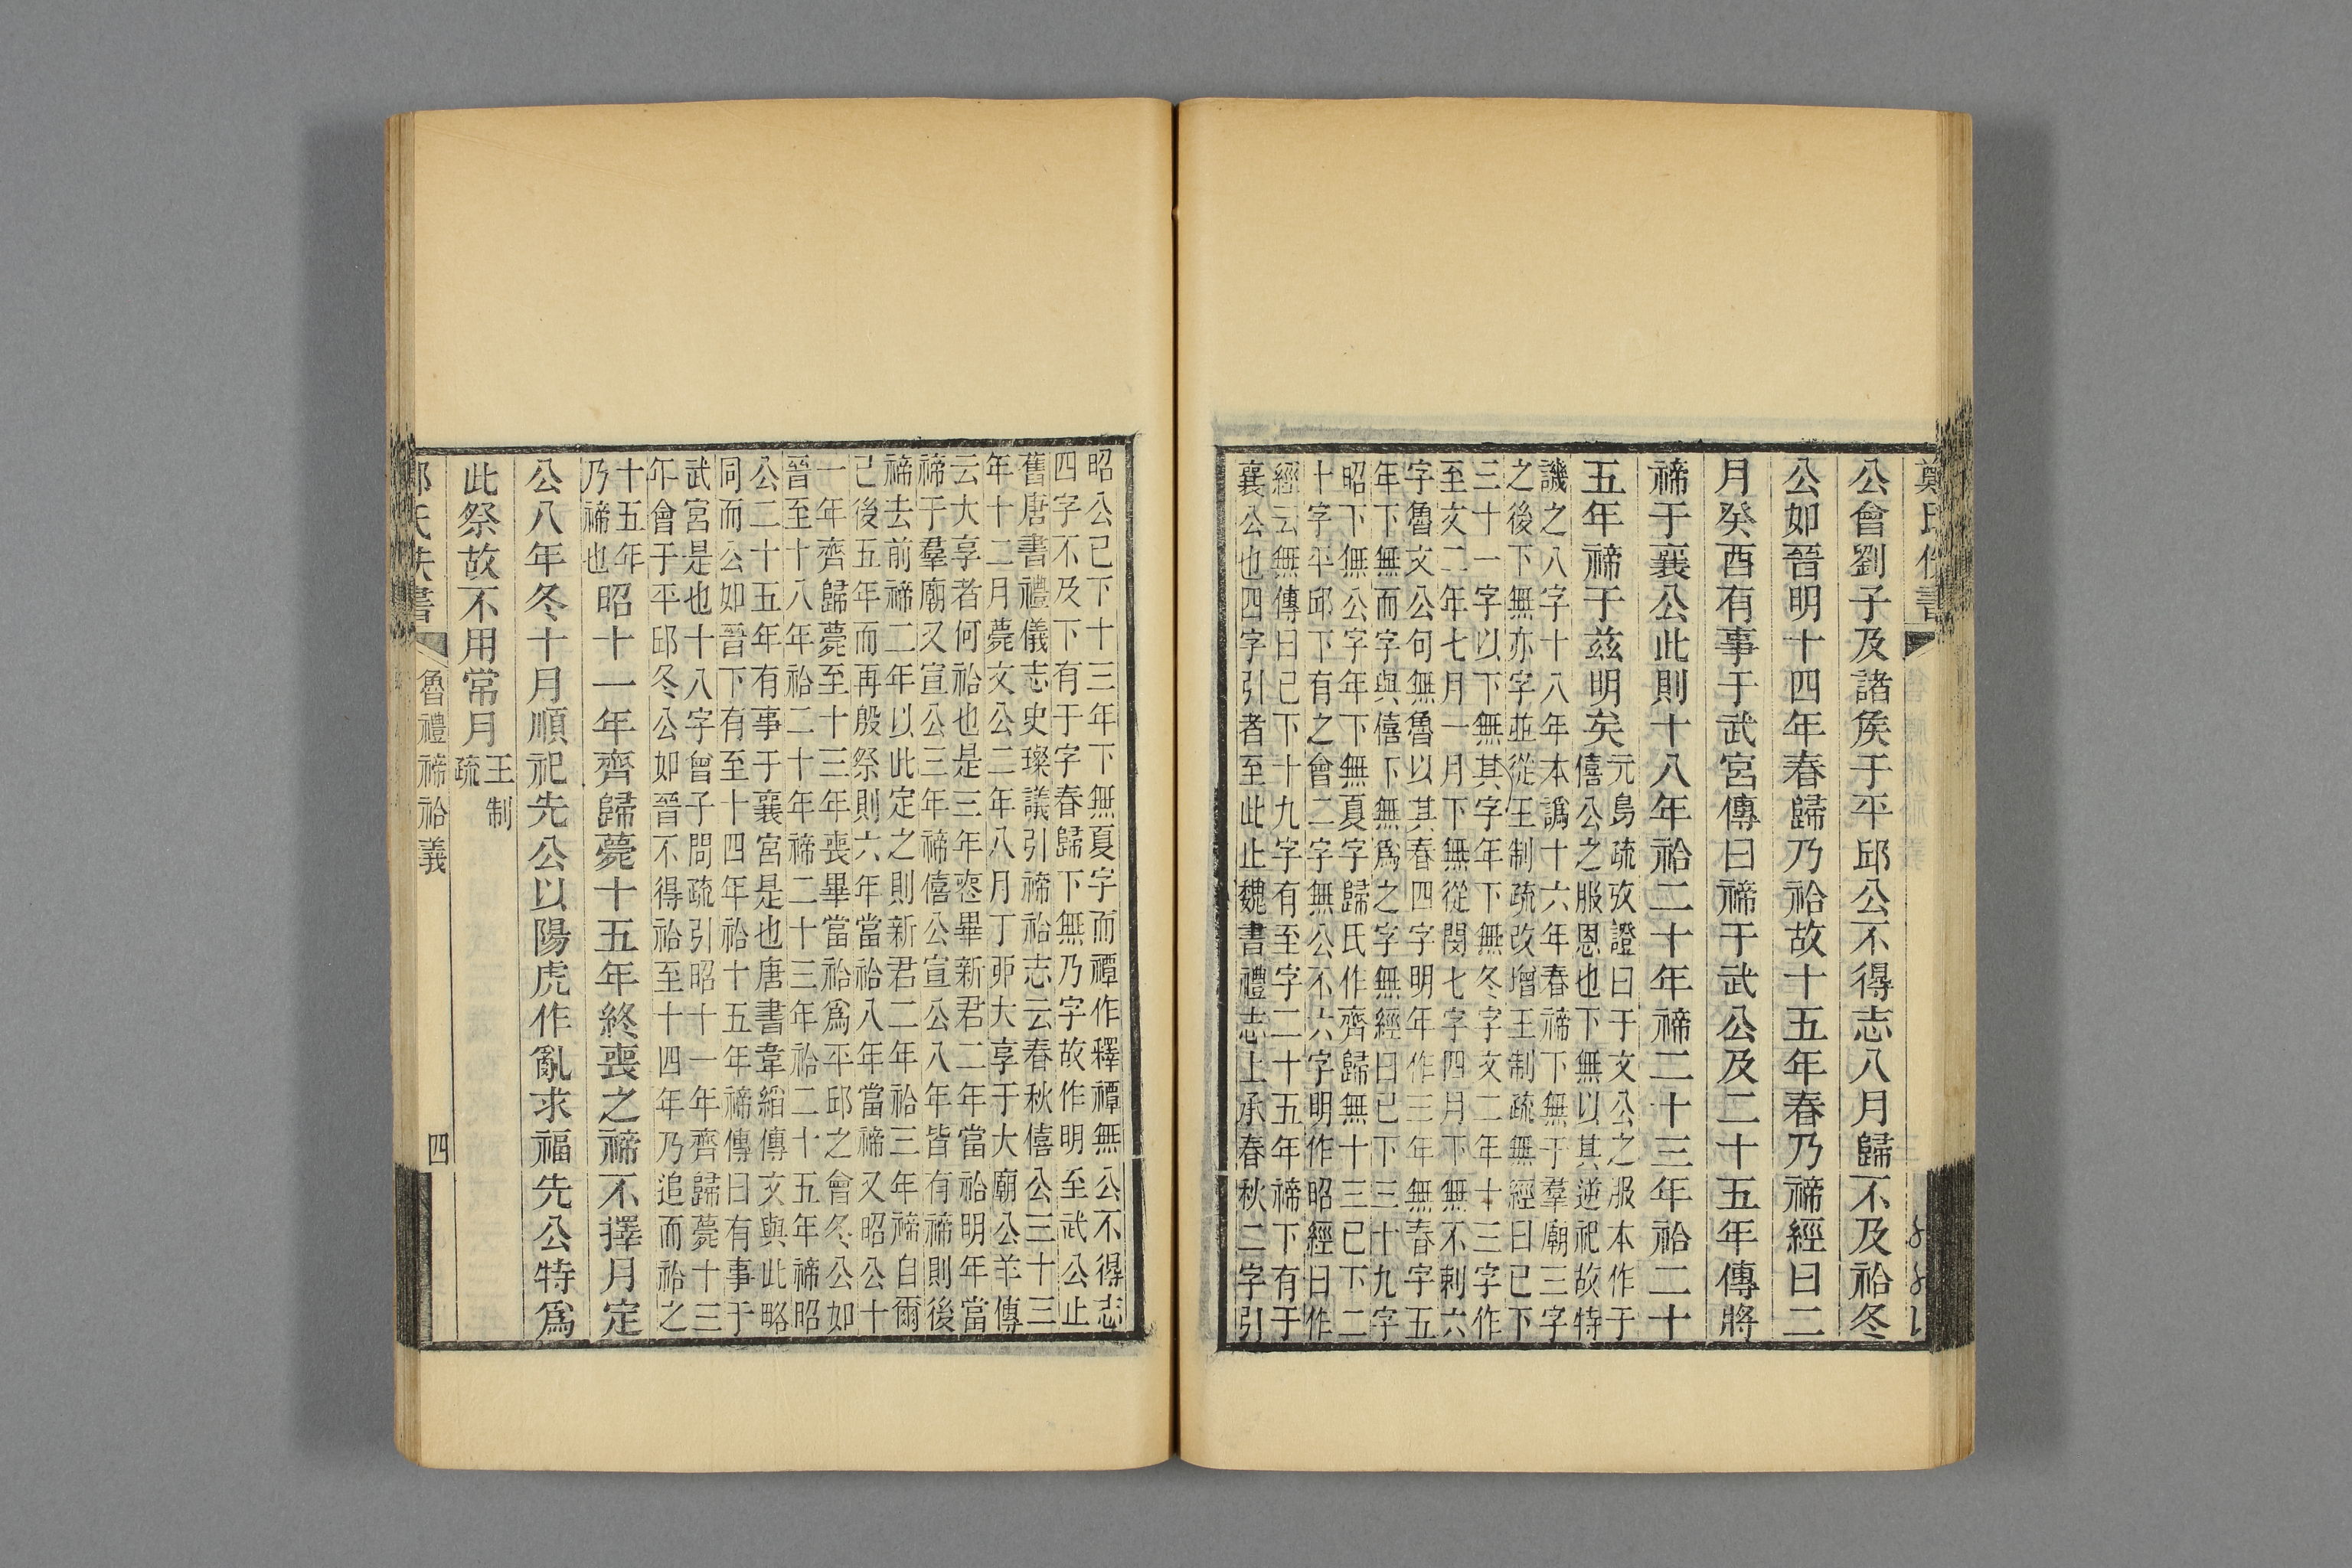 公會劉子及諸矦于平邱公不得志八月歸不及祫冬
公如晉明十四年春歸乃祫故十五年春乃禘經曰二
月癸酉有事于武宮傳曰禘于武公及二十五年傳將
禘于襄公此則十八年祫二十年禘二十三年祫二十
五年禘于兹明矣
元鳥疏攷證曰于文公之服本作于
僖公之服恩也下無以其逆祀故特
譏之八字十八年本譌十六年春禘下無于羣廟三字
之後下無亦字並從王制疏改增王制疏無經曰已下
三十一字以下無其字年下無冬字文二年十三字作
至文二年七月一月下無從閔七字四月下無不剌六
字魯文公何無魯以其春四字明年作三年無春字五
年下無而字與僖下無爲之字無經曰已下三十九字
昭下無公字年下無夏字歸氏作齊歸無十三已下二
十字平邱下有之會二字無公不六字明作昭經曰作
經云無傳曰已下十九字有至字二十五年禘下有于
襄公也四字引者至此止魏書禮志上承春秋二字引
昭公已下十三年下無夏字而禫作釋禫無公不得志
四字不及下有于字春歸下無乃字故作明至武公止
舊唐書禮儀志史璨議引禘祫志云春秋僖公三十三
年十二月薨文公二年八月丁丣大享于大廟公羊傳
云大享者何祫也是三年喪畢新君二年當祫明年當
禘于羣廟又宣公三年禘僖公宣公八年皆有禘則後
禘去前禘二年以此定之則新君二年祫三年禘自爾
已後五年而再殷祭則六年當祫八年當禘又昭公十
一年齊歸薨至十三年喪畢當祫爲平邱之會冬公如
晉至十八年祫二十年禘二十三年祫二十五年禘昭
公二十五年有事于襄宮是也唐書韋縚傳文與此略
同而公如晉下有至十四年祫十五年禘傳曰有事于
武宮是也十八字曾子問疏引昭十一年齊歸薨十三
年會于平邱冬公如晉不得祫至十四年乃追而祫之
十五年
乃禘也
昭十一年齊歸薨十五年終喪之禘不擇月定
公八年冬十月順祀先公以陽虎作亂求福先公特爲
此祭故不用常月
王制
疏
魯禮禘祫義
四